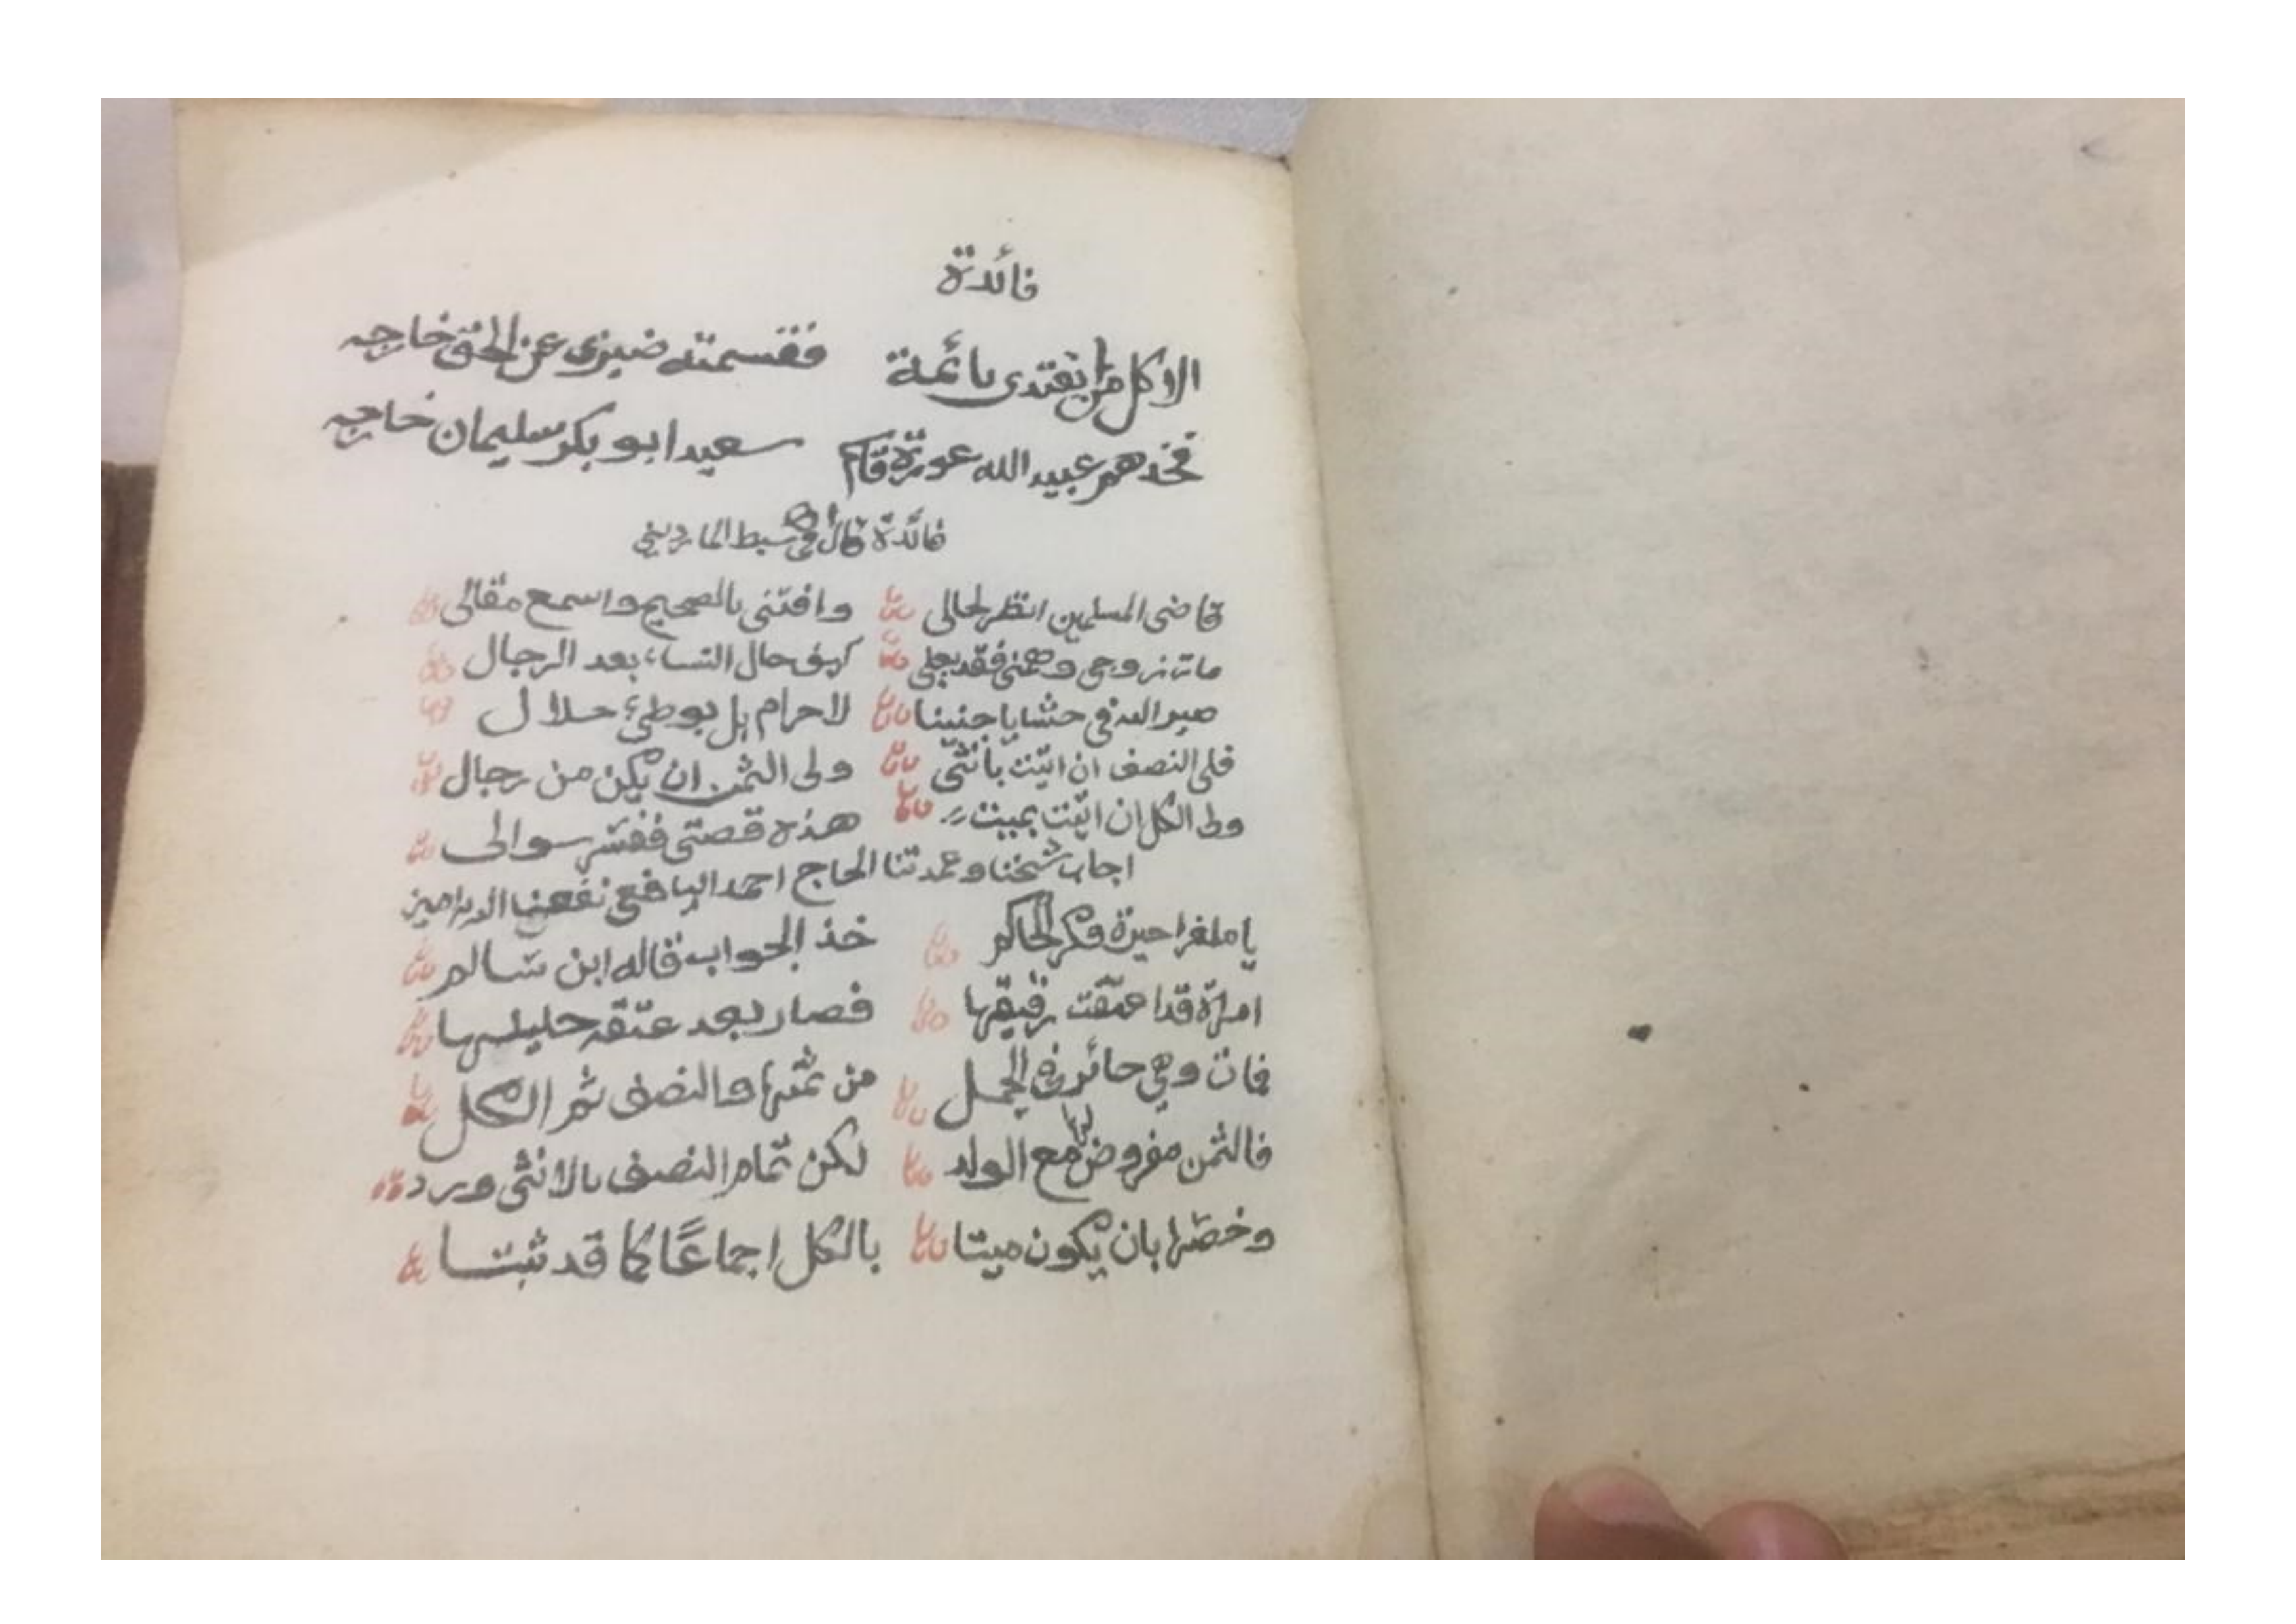 فائدة
الا كل من لا يقتدى بائمة فقسمته ضيزى عن الحق خارجه
فخذهم عبيد الله عروة قاسم سعيد ابو بكر سليمان خارجه
فائدة قال في سبط الماردينى
قاضى المسلمين انظر لحالى وافتنى بالصحيح واسمع مقالى
مات زوجى وهمنى فقد بعلى كيف حال النساء بعد الرجال
صير الله فى حشايا جنينا لا حرام بل بوطىء حلال
فلى النصف ان اتيت بانثى ولى الثمن ان يكن من رجال
ولى الكل ان اتيت بميت هذه قصتى ففسر سوالى
اجاب شيخنا وعمدتنا الحاج احمد اليافعى نفعنا الله به امين
يا ملغزا حيرة فكر الحاكم خذ الجواب قاله ابن سالم
امراة قد اعتقت رقيقها فصار بعد عتقه حليلها
فمات وهي حائزة الحمل من ثمنها والنصف ثم الكل
فالثمن مفروض لها مع الولد لكن تمام النصف بالانثى ورد
وخصها بان يكون ميتا بالكل اجماعًا كما قد ثبتا